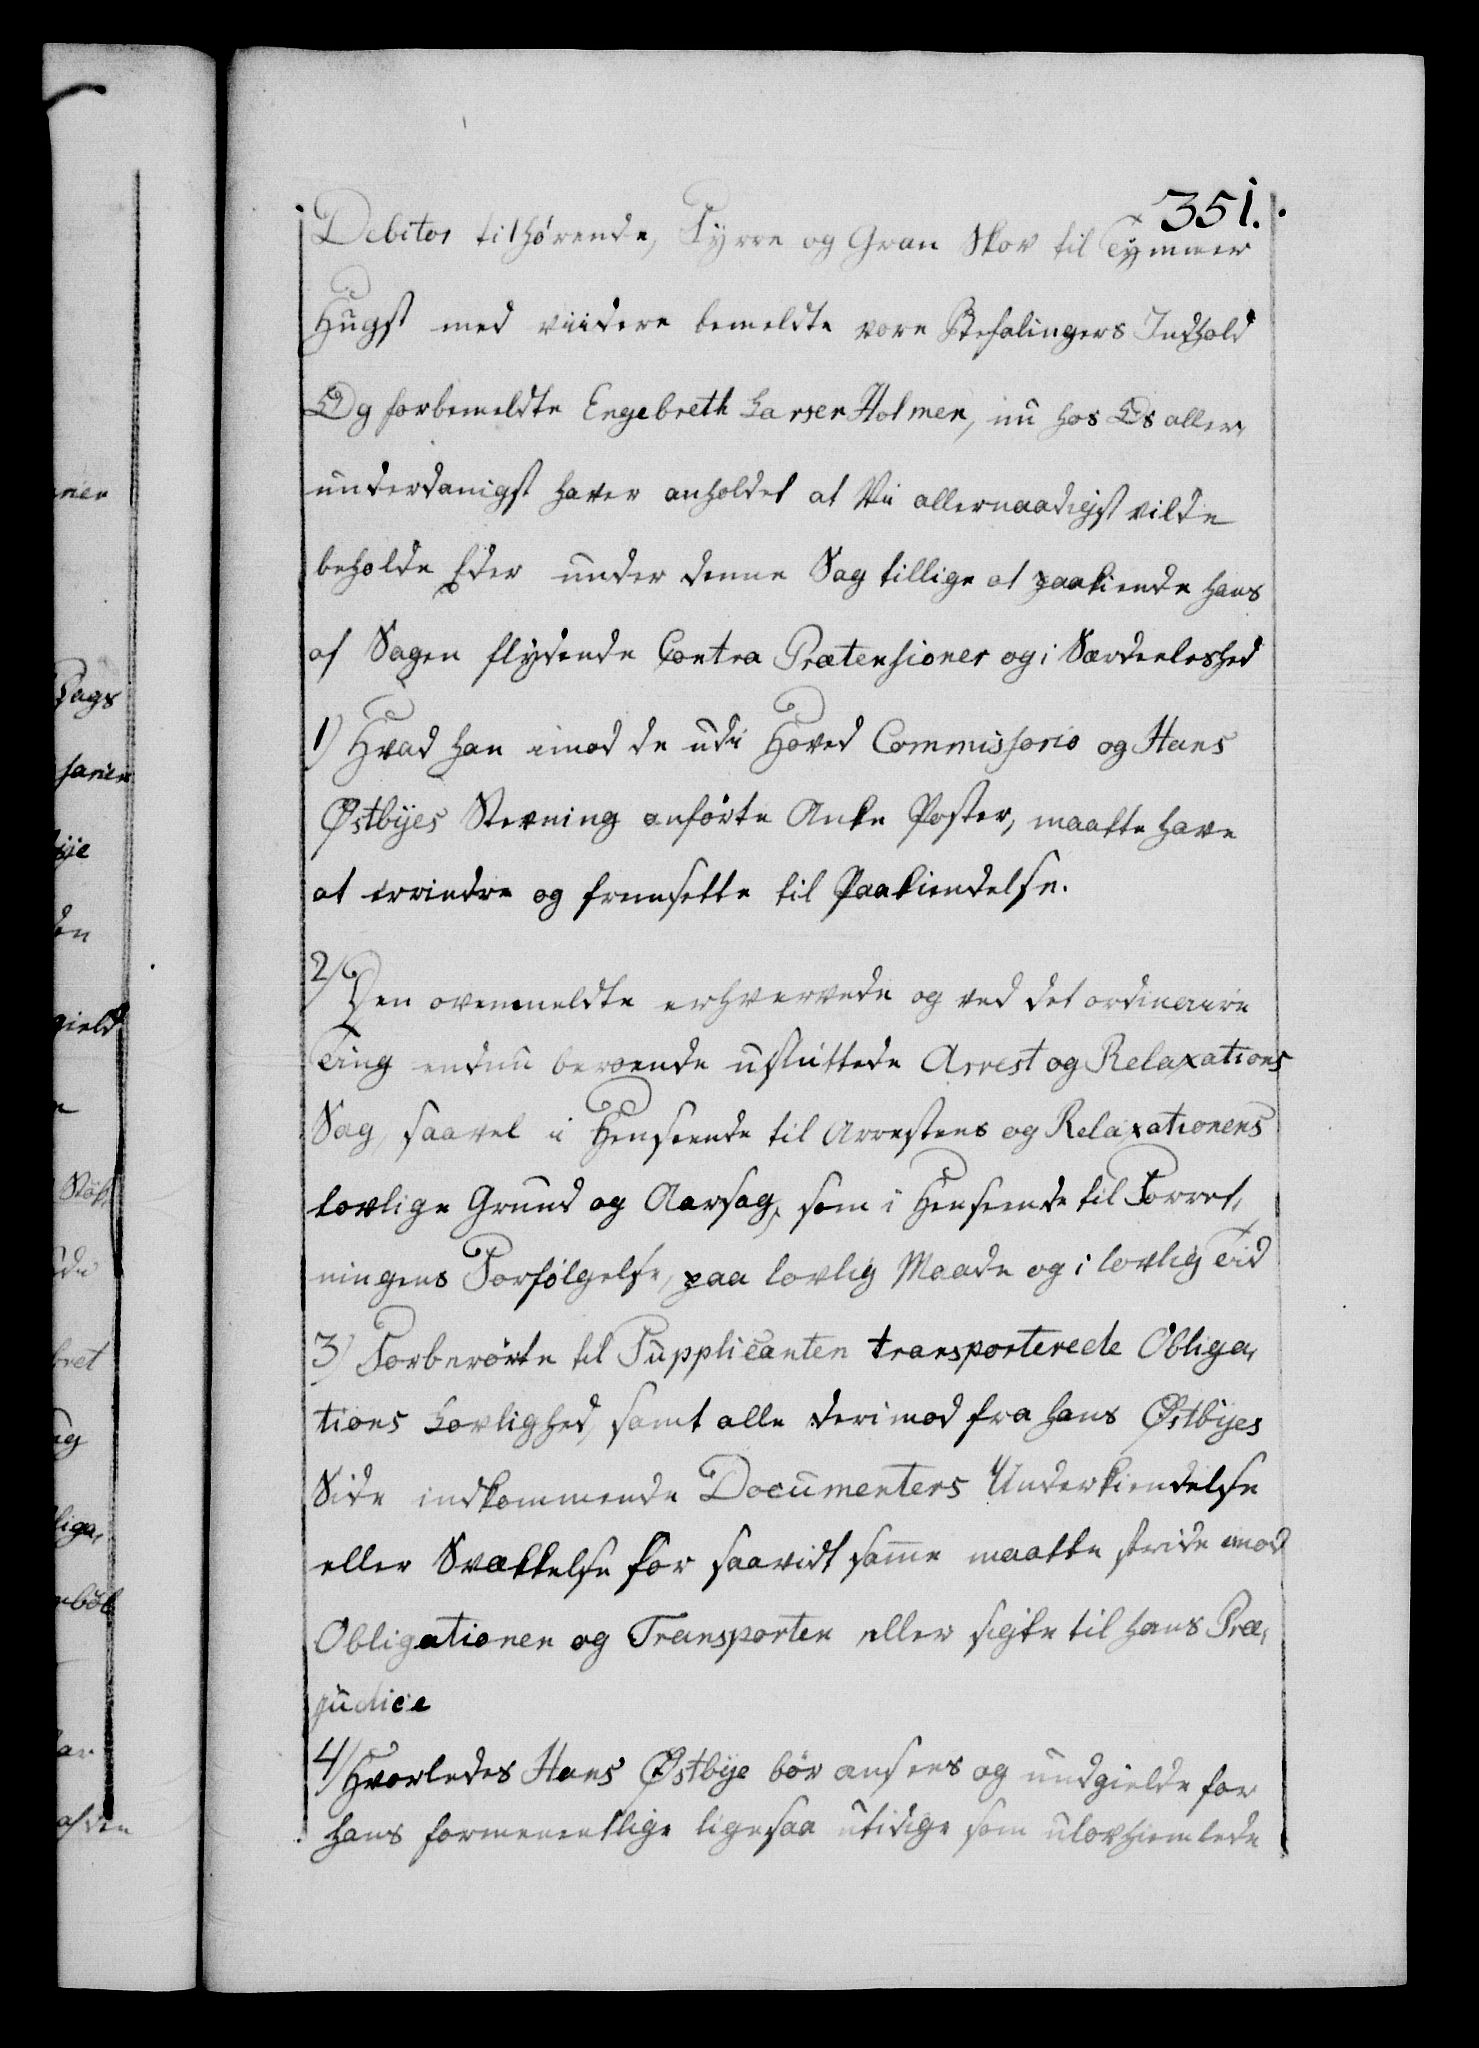 351.
Debitor tilhørende, Fyrre og Gran Skov til Tymmer
Hugst med viidere bemeldte vore Befalingers Indhold
Og forbemeldte Engebreth Larsen Holmen, nu hos Os aller,
underdanigst haver anholdet at Vii allernaadigst vilde
beholde Eder under denne Sag tillige at paakiende hans
af Sagen flydende Contra Prætensioner og i Særdeeleshed
1) Hvad han imod de udi Hoved Commissorio og Hans
Østbyes Stevning anførte Anke Poster, maatte have
at erindre og fremsette til Paakiendelse.
2) Den ovenmeldte erhvervede og ved det ordinaire
Ting endnu beroende usluttede Arrest og Relaxations
Sag, saavel i Henseende til Arrestens og Relaxationens
lovlige Grund og Aarsag, som i Henseende til Forret,
ningens Forfølgelse, paa lovlig Maade og i lovlig Tid
3) Forberørte til Supplicanten transporterede Obliga,
tions Lovlighed, samt alle derimod fra Hans Østbyes
Side indkommende Documenters Underkiendelse
eller Svækkelse for saavidt samme maatte stride imod
Obligationen og Transporten eller sigte til hans Præ,
judice
4) Hvorledes Hans Østbye bør ansees og undgielde for
hans formeentlige ligesaa utidige som ulovhiemlede
Tags
sanier
bye
den
gield
Støb,
bret
liga,
ar
af den